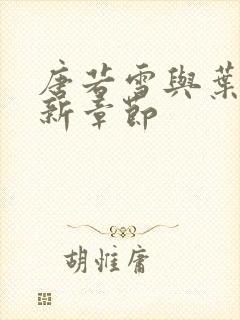 唐若雪與葉
新章節
胡惟庸